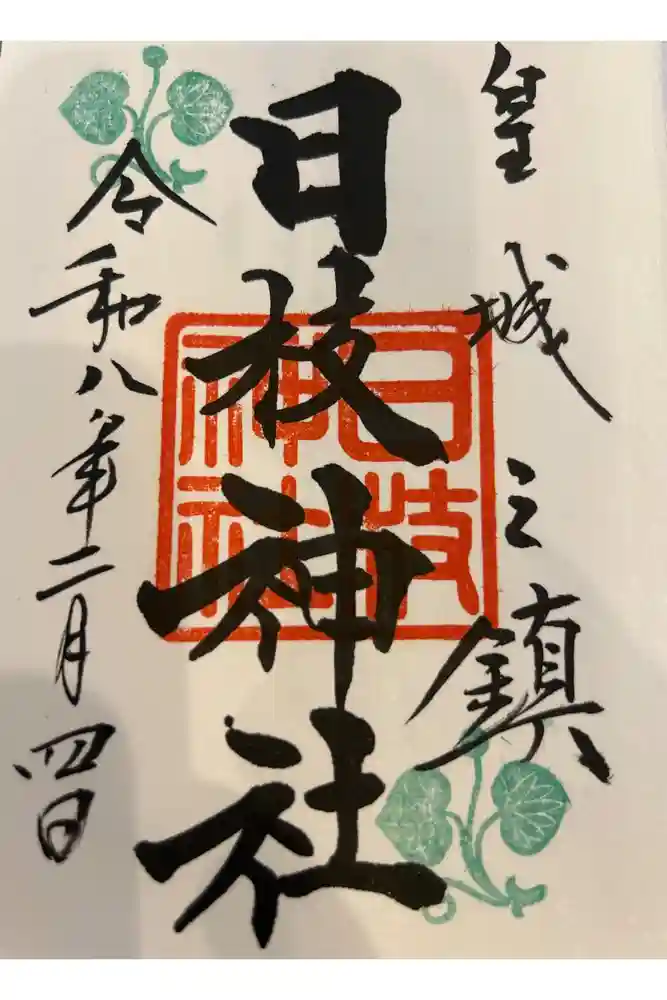 皇城之鎮
日枝神社
日枝
神社
令和八年二月四日